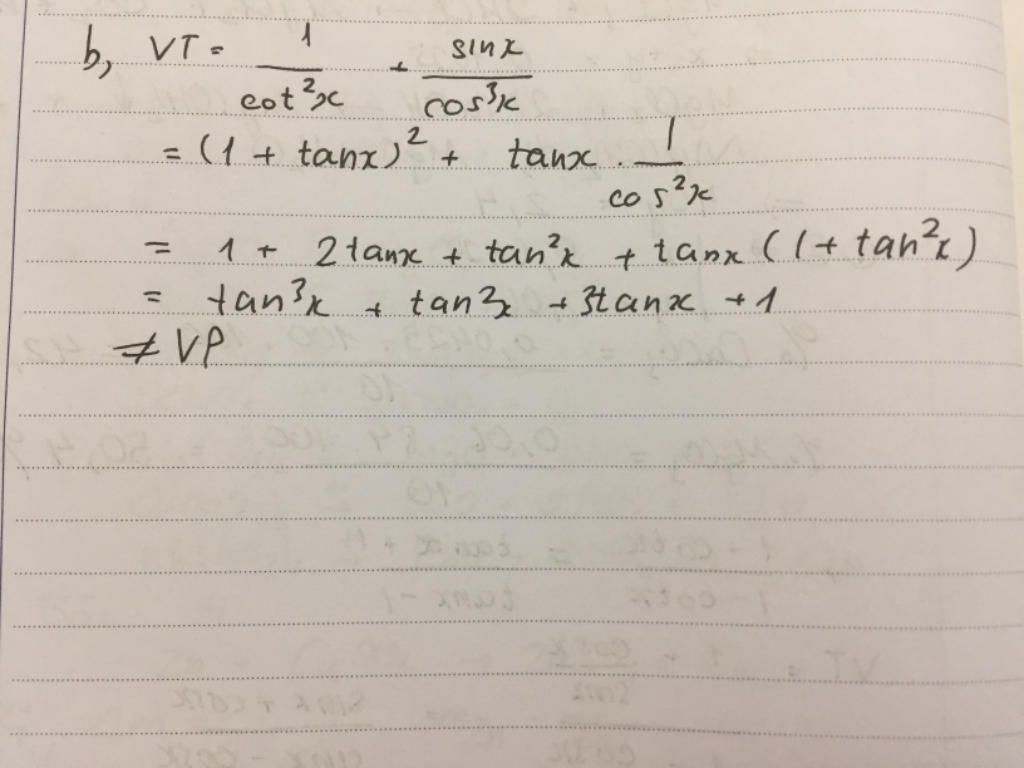 b, VT = 1/cot²x + sinx/cos³x
= (1 + tanx)² + tanx . 1/cos²x
= 1 + 2tanx + tan²x + tanx (1 + tan²x)
= tan³x + tan²x + 3tanx + 1
≠ VP